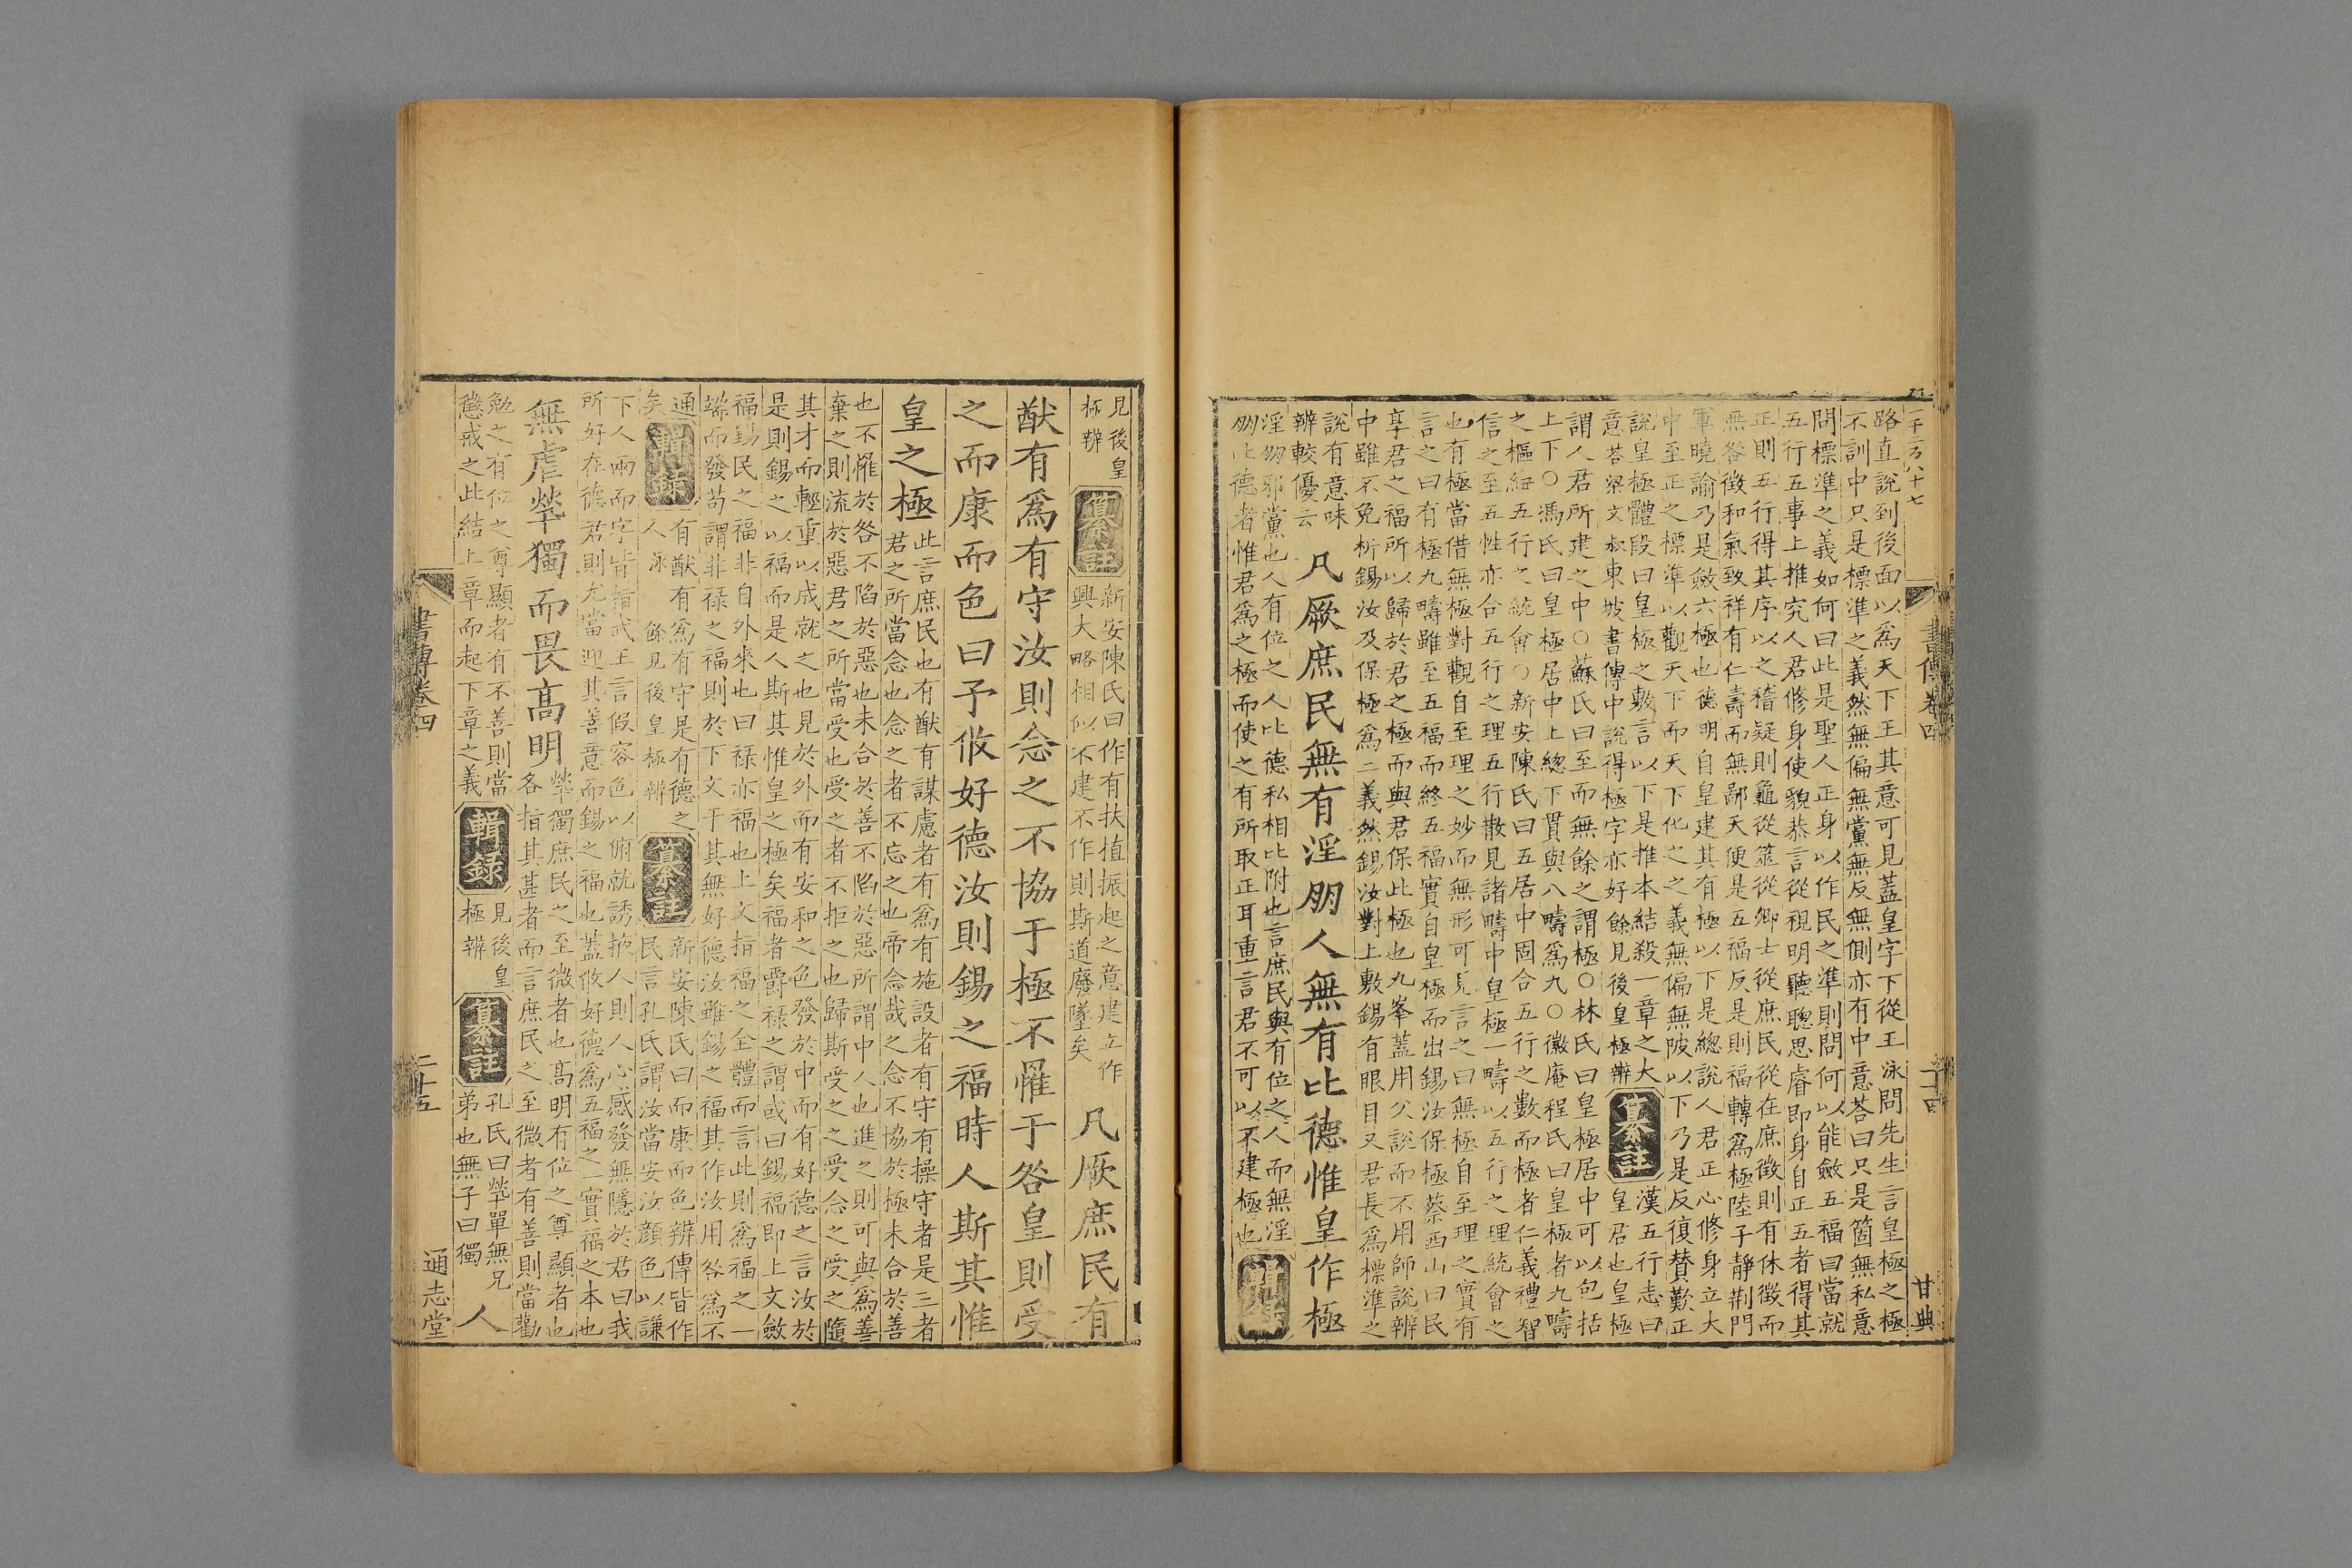 書傳卷四
二十四
甘典
路直說到後面以爲天下王其意可見蓋皇字下從王泳問先生言皇極之極
不訓中只是標準之義然無偏無黨無反無側亦有中意荅曰只是箇無私意
問標準之義如何曰此是聖人正身以作民之準則問何以能斂五福曰當就
五行五事上推究人君修身使貌恭言從視明聽聰思睿即身自正五者得其
正則五行得其序以之稽疑則龜從筮從卿士從庶民從在庶徵則有休徵而
無咎徵和氣致祥有仁壽而無鄙夭便是五福反是則福轉爲極陸子靜荆門
軍曉諭乃是斂六極也德明自皇建其有極以下是總說人君正心修身立大
中至正之標準以觀天下而天下化之之義無偏無陂以下乃是反復贊歎正
說皇極體段曰皇極之敷言以下是推本結殺一章之大
意荅梁文叔東坡書傳中說得極字亦好餘見後皇極辨
纂註
漢五行志曰
皇君也皇極
謂人君所建之中○蘇氏曰至而無餘之謂極○林氏曰皇極居中可以包括
上下○馮氏曰皇極居中上總下貫與八疇爲九○徽庵程氏曰皇極者九疇
之樞紐五行之統會○新安陳氏曰五居中固合五行之數而極者仁義禮智
信之至五性亦合五行之理五行散見諸疇中皇極一疇以五行之理統會之
也有極當借無極對觀自至理之妙而無形可見言之曰無極自至理之實有
言之曰有極九疇雖至五福而終五福實自皇極而出錫汝保極蔡西山曰民
享君之福所以歸於君之極而與君保此極也九峯蓋用父說而不用師說辨
中雖不免析錫汝及保極爲二義然錫汝對上敷錫有眼目又君長爲標準之
說有意味
辨較優云
凡厥庶民無有淫朋人無有比德惟皇作極
淫朋邪黨也人有位之人比德私相比附也言庶民與有位之人而無淫
朋比德者惟君爲之極而使之有所取正耳重言君不可以不建極也
輯錄
見後皇
極辨
纂註
新安陳氏曰作有扶植振起之意建立作
興大略相似不建不作則斯道廢墜矣
凡厥庶民有
猷有爲有守汝則念之不協于極不罹于咎皇則受
之而康而色曰予攸好德汝則錫之福時人斯其惟
皇之極
此言庶民也有猷有謀慮者有爲有施設者有守有操守者是三者
君之所當念也念之者不忘之也帝念哉之念不協於極未合於善
也不罹於咎不陷於惡也未合於善不陷於惡所謂中人也進之則可與爲善
棄之則流於惡君之所當受也受之者不拒之也歸斯受之之受念之受之隨
其才而輕重以成就之也見於外而有安和之色發於中而有好德之言汝於
是則錫之以福而是人斯其惟皇之極矣福者爵祿之謂或曰錫福即上文斂
福錫民之福非自外來也曰祿亦福也上文指福之全體而言此則爲福之一
端而發苟謂非祿之福則於下文于其無好德汝雖錫之福其作汝用咎爲不
通
矣
輯錄
有猷有爲有守是有德之
人 泳 餘見後皇極辨
纂註
新安陳氏曰而康而色辨傳皆作
民言孔氏謂汝當安汝顔色以謙
下人兩而字皆指武王言假容色以俯就誘掖人則人心感發無隱於君曰我
所好在德君則尤當迎其善意而錫之福也蓋攸好德爲五福之一實福之本也
無虐煢獨而畏高明
煢獨庶民之至微者也高明有位之尊顯者也
各指其甚者而言庶民之至微者有善則當勸
勉之有位之尊顯者有不善則當
懲戒之此結上章而起下章之義
輯錄
見後皇
極辨
纂註
孔氏曰煢單無兄
弟也無子曰獨
人
書傳卷四
二十五
通志堂